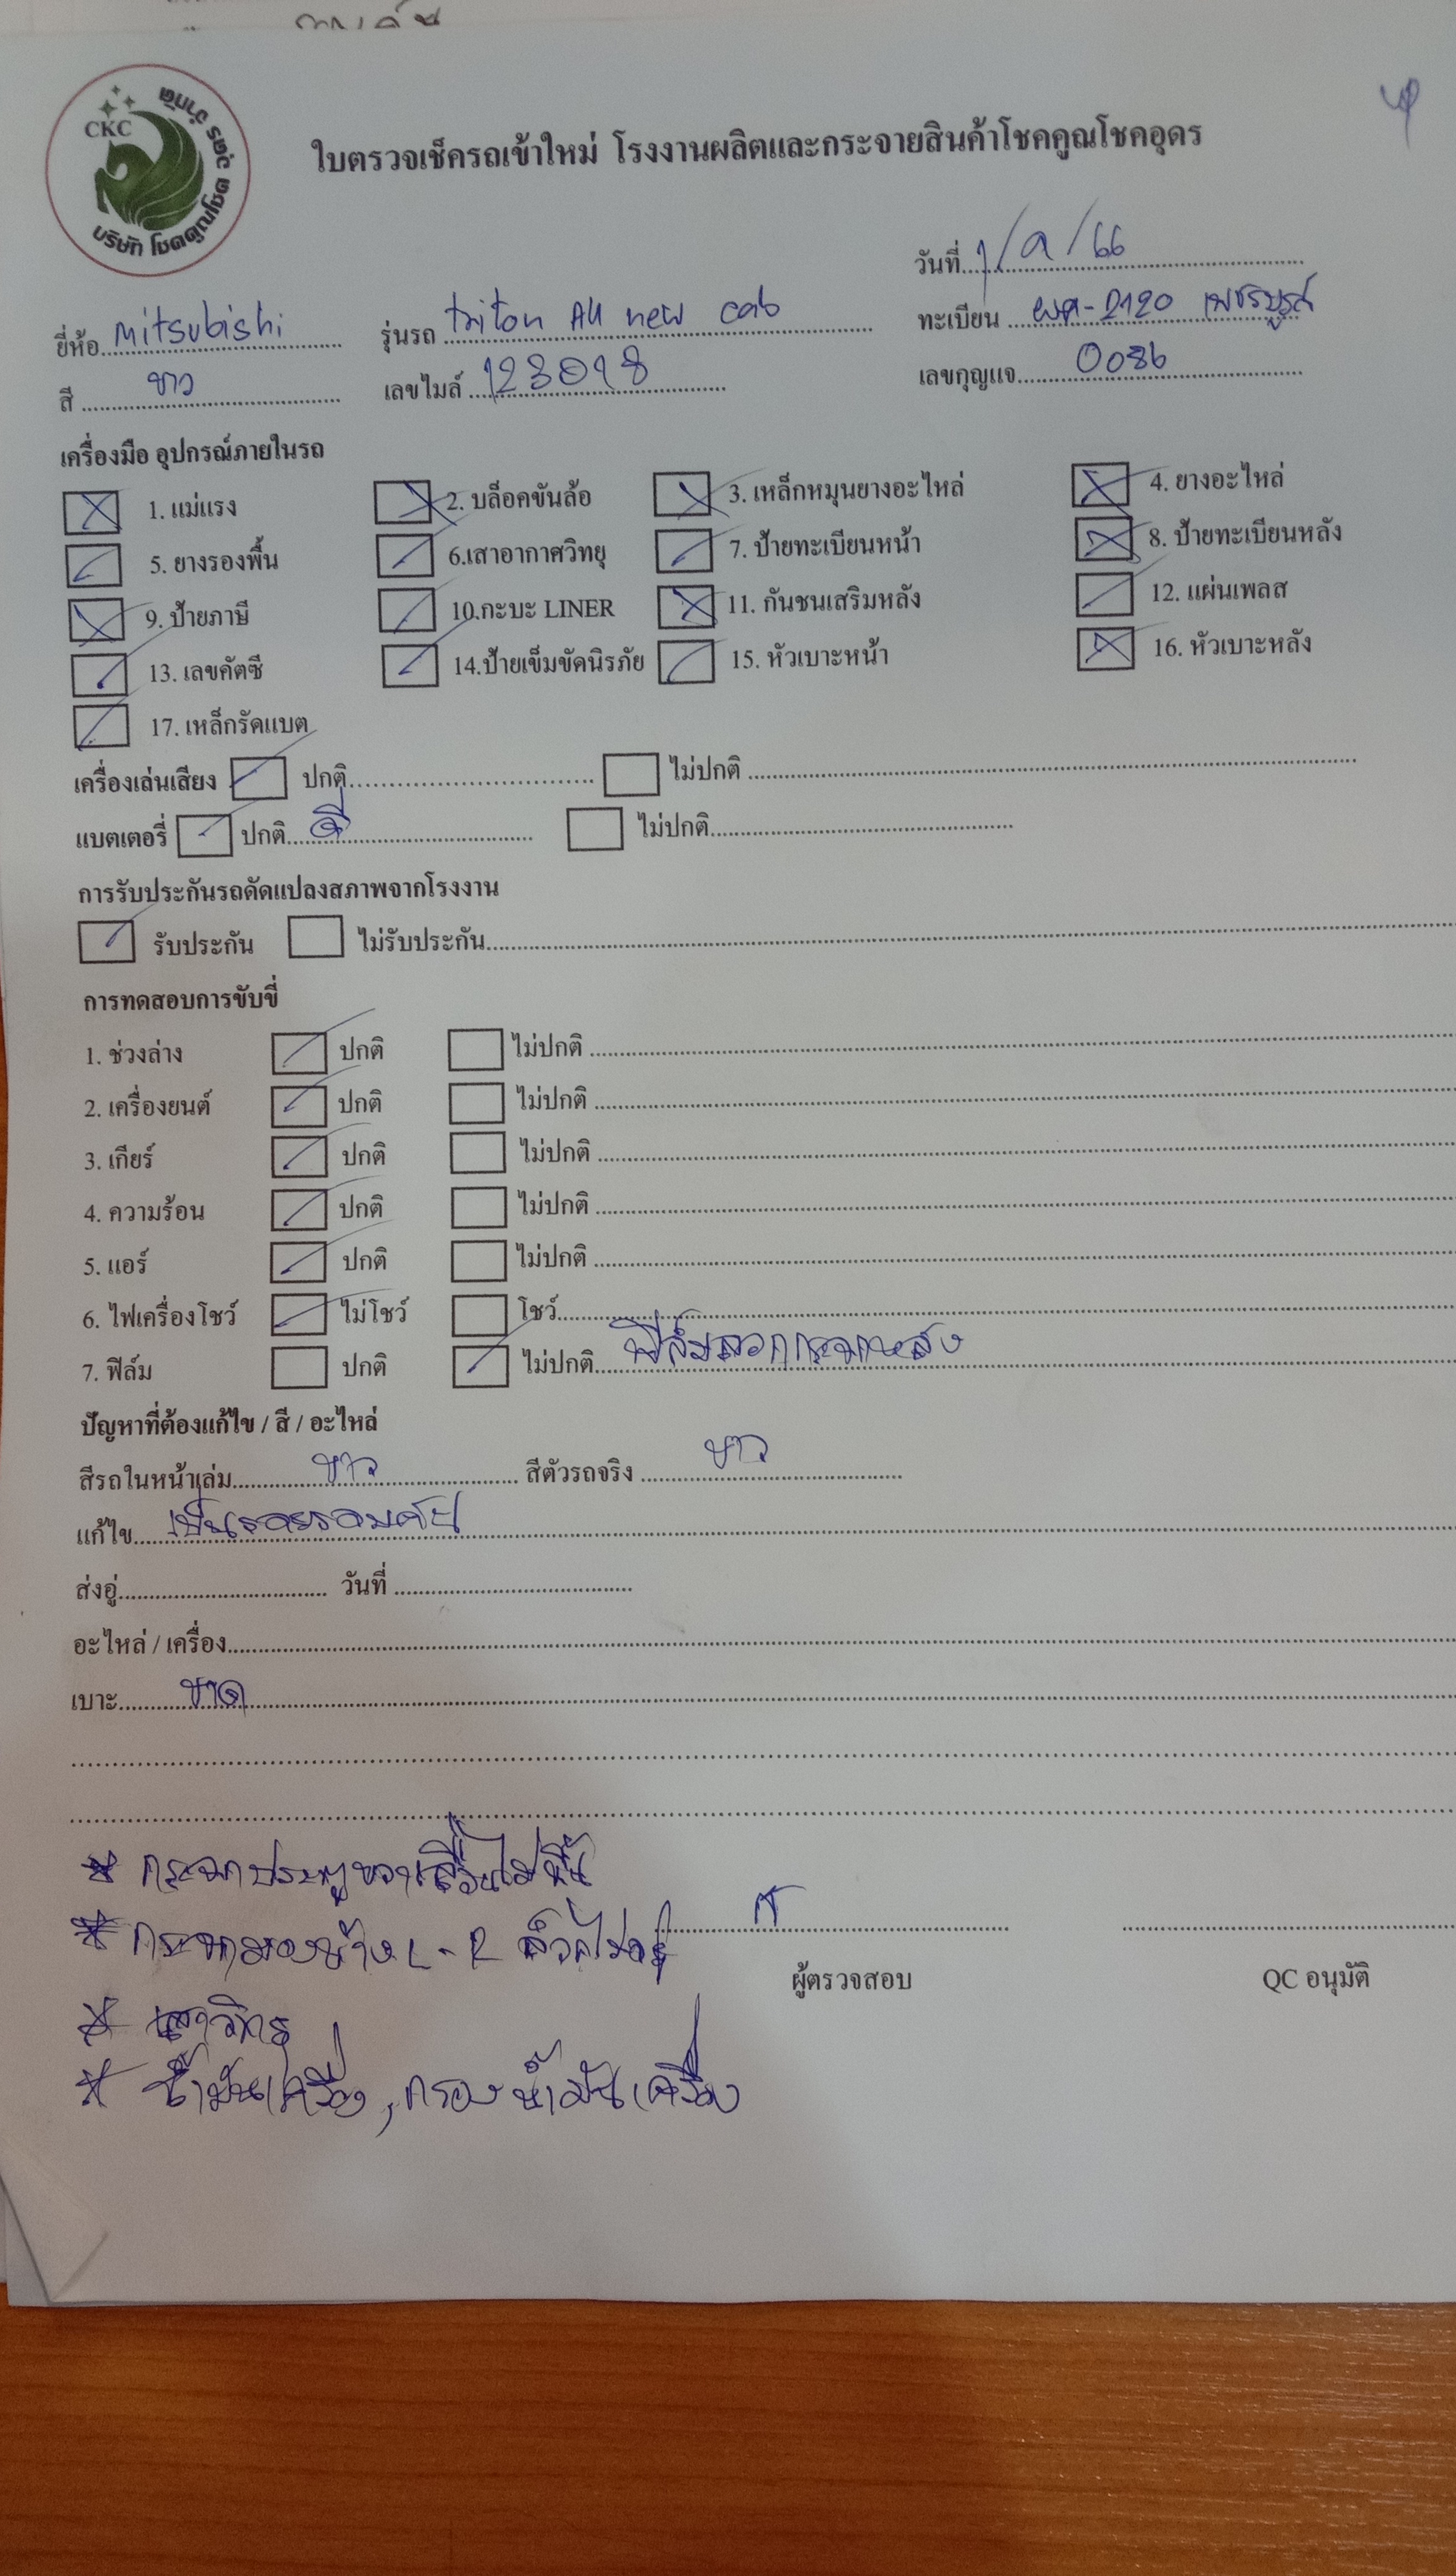 CKC
บริษัท โชคคูณโชค อุดร จำกัด
ใบตรวจเช็ครถเข้าใหม่ โรงงานผลิตและกระจายสินค้าโชคคูณโชคอุดร
วันที่ 1/9/66
ยี่ห้อ Mitsubishi รุ่นรถ triton All new cab ทะเบียน 2120 เพชรบูรณ์
สี ขาว เลขไมล์ 123018 เลขกุญแจ 0086
เครื่องมือ อุปกรณ์ภายในรถ
1. แม่แรง 2. บล็อคขันล้อ 3. เหล็กหมุนยางอะไหล่ 4. ยางอะไหล่
5. ยางรองพื้น 6.เสาอากาศวิทยุ 7. ป้ายทะเบียนหน้า 8. ป้ายทะเบียนหลัง
9. ป้ายภาษี 10.กะบะ LINER 11. กันชนเสริมหลัง 12. แผ่นเพลส
13. เลขคัตซี 14.ป้ายเข็มขัดนิรภัย 15. หัวเบาะหน้า 16. หัวเบาะหลัง
17. เหล็กรัดแบต
เครื่องเล่นเสียง ปกติ ไม่ปกติ
แบตเตอรี่ ปกติ ดี ไม่ปกติ
การรับประกันรถดัดแปลงสภาพจากโรงงาน
รับประกัน ไม่รับประกัน
การทดสอบการขับขี่
1. ช่วงล่าง ปกติ ไม่ปกติ
2. เครื่องยนต์ ปกติ ไม่ปกติ
3. เกียร์ ปกติ ไม่ปกติ
4. ความร้อน ปกติ ไม่ปกติ
5. แอร์ ปกติ ไม่ปกติ
6. ไฟเครื่องโชว์ ไม่โชว์ โชว์
7. ฟิล์ม ปกติ ไม่ปกติ ฟิล์มลอกกระจกหลัง
ปัญหาที่ต้องแก้ไข / สี / อะไหล่
สีรถในหน้าเล่ม ขาว สีตัวรถจริง ขาว
แก้ไข เป็นรอยรอบคัน
ส่งอู่ วันที่
อะไหล่ / เครื่อง
เบาะ ขาด
* กระจกประตูขวาเลื่อนไม่ขึ้น
* กระจกมองข้าง L - R ล็อคไม่อยู่
ผู้ตรวจสอบ QC อนุมัติ
* น้ำมันเครื่อง, กรองน้ำมันเครื่อง